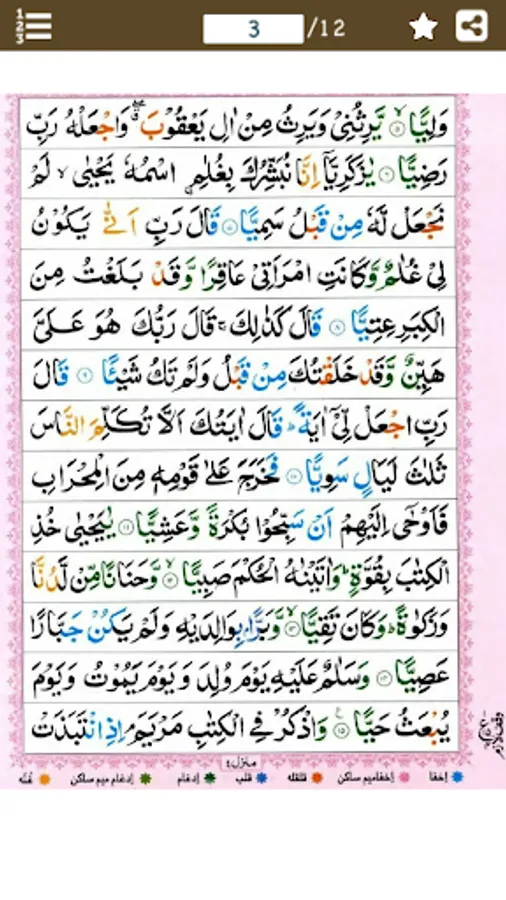 123 3 /12
وَلِيًّا ۙ۝۵ يَّرِثُنِيْ وَيَرِثُ مِنْ اٰلِ يَعْقُوْبَ ۖ وَاجْعَلْهُ رَبِّ
رَضِيًّا ۝۶ يٰزَكَرِيَّاۤ اِنَّا نُبَشِّرُكَ بِغُلٰمِ ۨاسْمُهٗ يَحْيٰى ۙ لَمْ
نَجْعَلْ لَّهٗ مِنْ قَبْلُ سَمِيًّا ۝۷ قَالَ رَبِّ اَنّٰى يَكُوْنُ
لِيْ غُلٰمٌ وَّكَانَتِ امْرَاَتِيْ عَاقِرًا وَّقَدْ بَلَغْتُ مِنَ
الْكِبَرِ عِتِيًّا ۝۸ قَالَ كَذٰلِكَ ۚ قَالَ رَبُّكَ هُوَ عَلَيَّ
هَيِّنٌ وَّقَدْ خَلَقْتُكَ مِنْ قَبْلُ وَلَمْ تَكُ شَيْـًٔا ۝۹ قَالَ
رَبِّ اجْعَلْ لِّيْۤ اٰيَةً ؕ قَالَ اٰيَتُكَ اَلَّا تُكَلِّمَ النَّاسَ
ثَلٰثَ لَيَالٍ سَوِيًّا ۝۱۰ فَخَرَجَ عَلٰى قَوْمِهٖ مِنَ الْمِحْرَابِ
فَاَوْحٰۤى اِلَيْهِمْ اَنْ سَبِّحُوْا بُكْرَةً وَّعَشِيًّا ۝۱۱ يٰيَحْيٰى خُذِ
الْكِتٰبَ بِقُوَّةٍ ؕ وَاٰتَيْنٰهُ الْحُكْمَ صَبِيًّا ۙ۝۱۲ وَّحَنَانًا مِّنْ لَّدُنَّا
وَزَكٰوةً ؕ وَكَانَ تَقِيًّا ۙ۝۱۳ وَّبَرًّۢا بِوَالِدَيْهِ وَلَمْ يَكُنْ جَبَّارًا
عَصِيًّا ۝۱۴ وَسَلٰمٌ عَلَيْهِ يَوْمَ وُلِدَ وَيَوْمَ يَمُوْتُ وَيَوْمَ
يُبْعَثُ حَيًّا ۝۱۵ وَاذْكُرْ فِي الْكِتٰبِ مَرْيَمَ ۘ اِذِ انْتَبَذَتْ
وقف لازم
منزل۴
إخفا إخفاميم ساكن قلقله قلب إدغام إدغام ميم ساكن غنّه